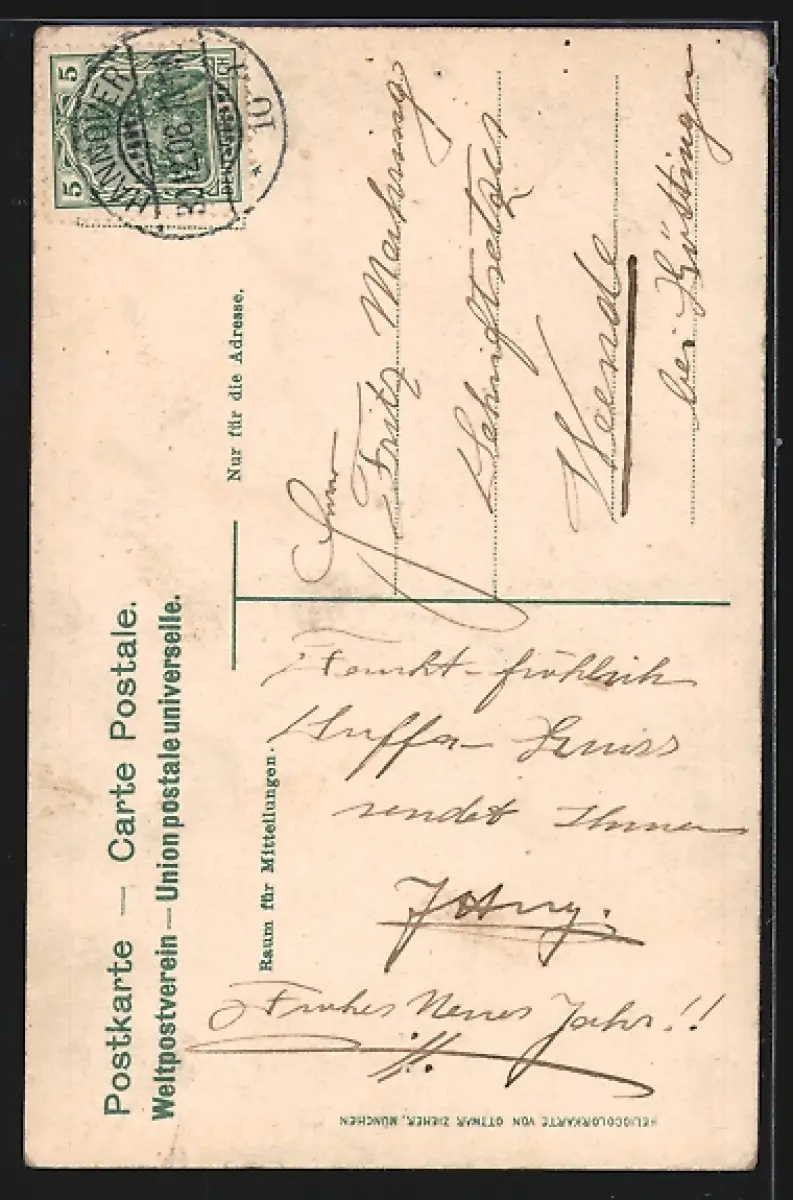 Postkarte — Carte Postale.
Weltpostverein — Union postale universelle.
5 5
HANNOVER
30.12.08.
10
Nur für die Adresse.
Herrn
Fritz
Schriftsetzer
Weende
bei Göttingen
Raum für Mitteilungen.
Feucht-fröhlich
Gruss
sendet Ihnen
Frohes Neues Jahr!!
HELIOCOLORKARTE VON OTTMAR ZIEHER, MÜNCHEN